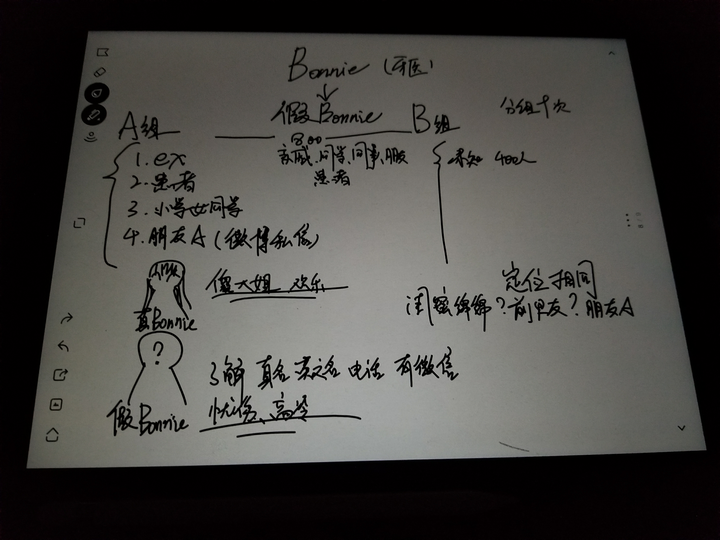 Bonnie (牙医)
假Bonnie
分组十次
A组
B组
800
亲戚、同学、同事、朋友
患者
1. ex
2. 患者
3. 小学女同学
4. 朋友A (微博私信)
未知 400人
傻大姐 欢乐
真Bonnie
定位相同
闺蜜绵绵? 前男友? 朋友A
?
了解 真名 英文名 电话 有微信
忧伤、高冷
假Bonnie